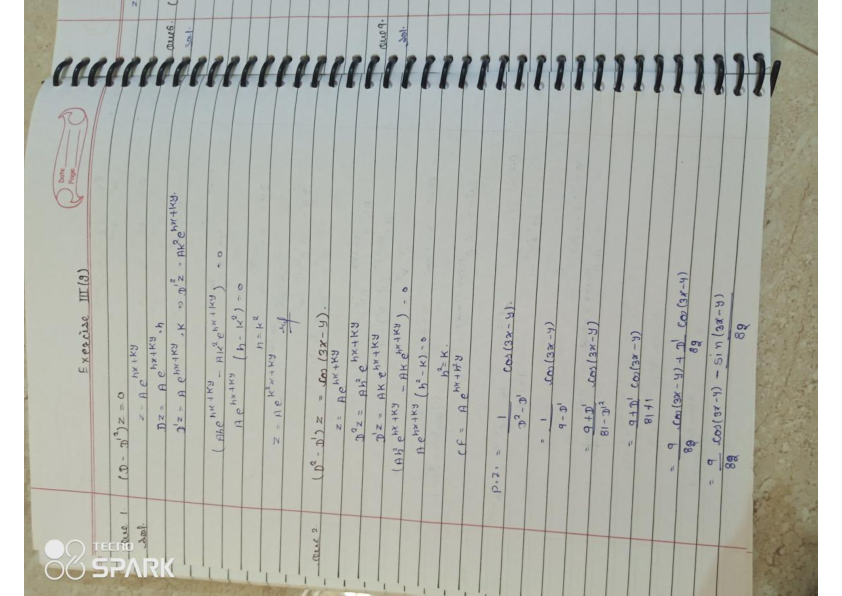 Date
Page
Exercise III(g)
Que 1 (D - D'²) z = 0
Sol. z = A e^{hx+ky}
Dz = A e^{hx+ky} . h
D'z = A e^{hx+ky} . K => D'²z = AK² e^{hx+ky}.
(Ah e^{hx+ky} - AK² e^{hx+ky}) = 0
A e^{hx+ky} (h - K²) = 0
h = k²
z = A e^{k²x+ky}
Que 2 (D² - D') z = cos (3x-y).
z = A e^{hx+ky}
D²z = Ah² e^{hx+ky}
D'z = AK e^{hx+ky}
(Ah² e^{hx+ky} - AK e^{hx+ky}) = 0
A e^{hx+ky} (h² - K) = 0
h² = K.
CF = A e^{hx+h²y}
P.I. = 1/(D² - D') cos (3x-y).
= 1/(9 - D') cos (3x-y)
= (9+D')/(81 - D'²) cos (3x-y)
= (9+D')/(81+1) cos (3x-y)
= 9/82 cos (3x-y) + D'/82 cos (3x-y)
= 9/82 cos (3x-y) - sin (3x-y)/82
Que 8
Sol.
Que 9.
Sol.
TECNO
SPARK